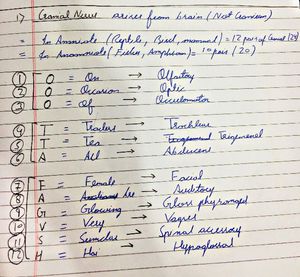 1) Cranial Nerves arises from brain (Not Cranium)
= In Amniote (Reptile, Bird, mammal) = 12 pair of Cranial (24)
= In Anamniote (Fishes, Amphibian) = 10 pair (20)
1 O = On → Olfactory
2 O = Occasion → Optic
3 O = Of → Occulomotor
4 T = Traders → Trochlear
5 T = Tea → Trigeminal
6 A = All → Abducent
7 F = Female → Facial
8 A = Are → Auditory
9 G = Glowing → Gloss phyrangeal
10 V = Very → Vagus
11 S = Similar → Spinal accessory
12 H = Hai → Hypoglossal